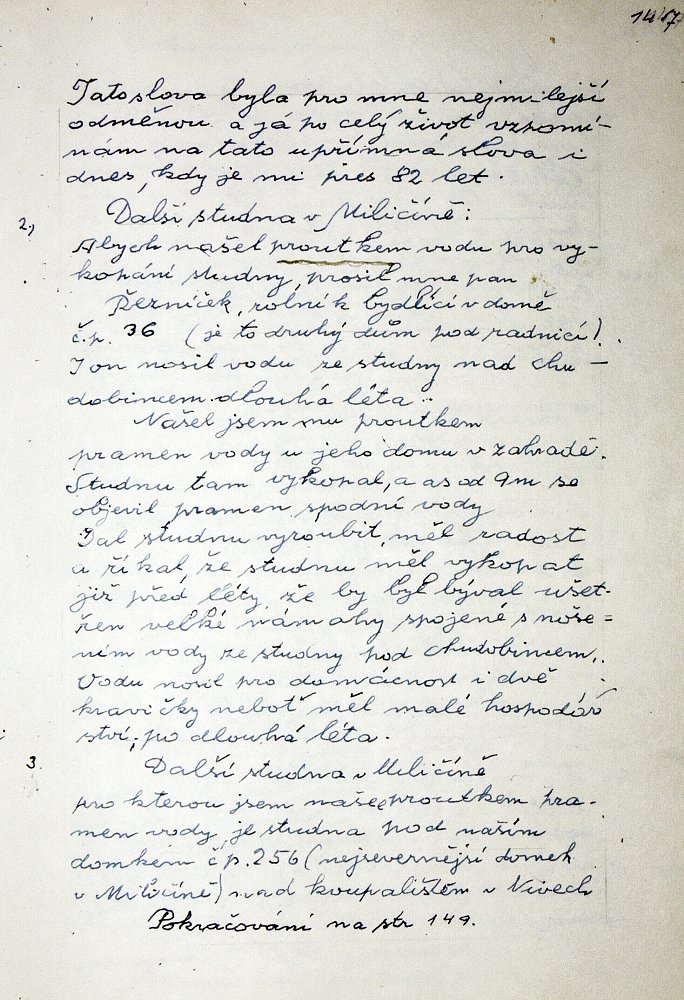 147
Tato slova byla pro mne nejmilejší
odměnou a já po celý život vzpomí-
nám na tato upřímná slova i
dnes, kdy je mi přes 82 let.
2.) Další studna v Miličíně:
Abych našel proutkem vodu pro vy-
kopání studny, prosil mne pan
Řezníček, rolník bydlící v domě
č.p. 36 (je to druhý dům pod radnicí).
I on nosil vodu ze studny nad chu-
dobincem dlouhá léta.
Našel jsem mu proutkem
pramen vody u jeho domu v zahradě.
Studnu tam vykopal, a as od 9m se
objevil pramen spodní vody
Dal studnu vyroubit, měl radost
a říkal, že studnu měl vykopat
již před léty, že by byl býval ušet-
řen velké námahy spojené s noše=
ním vody ze studny pod chudobincem.
Vodu nosil pro domácnost i dvě
kravičky neboť měl malé hospodář
ství, po dlouhá léta.
3. Další studna v Miličíně
pro kterou jsem našel proutkem pra-
men vody, je studna pod naším
domkem čp. 256 (nejsevernější domek
v Miličíně) nad koupalištěm v Nivech
Pokračování na str 149.